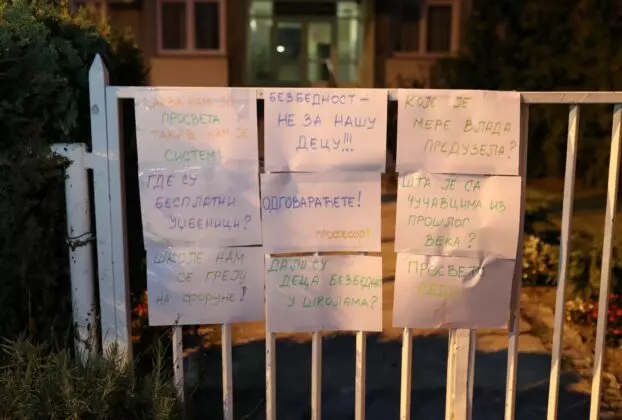 КАКВА НАМ ЈЕ
ПРОСВЕТА
ТАКАВ НАМ ЈЕ
СИСТЕМ!
БЕЗБЕДНОСТ –
НЕ ЗА НАШУ
ДЕЦУ!!!
КОЈЕ ЈЕ
МЕРЕ ВЛАДА
ПРЕДУЗЕЛА?
ГДЕ СУ
БЕСПЛАТНИ
УЏБЕНИЦИ?
ОДГОВАРАЋЕТЕ!
ПРОФЕСОР!
ШТА ЈЕ СА
ЧУЧАВЦИМА ИЗ
ПРОШЛОГ
ВЕКА?
ШКОЛЕ НАМ
СЕ ГРЕЈУ
НА ФОРУНЕ!
ДА ЛИ СУ
ДЕЦА БЕЗБЕДНА
У ШКОЛАМА?
ПРОСВЕТО